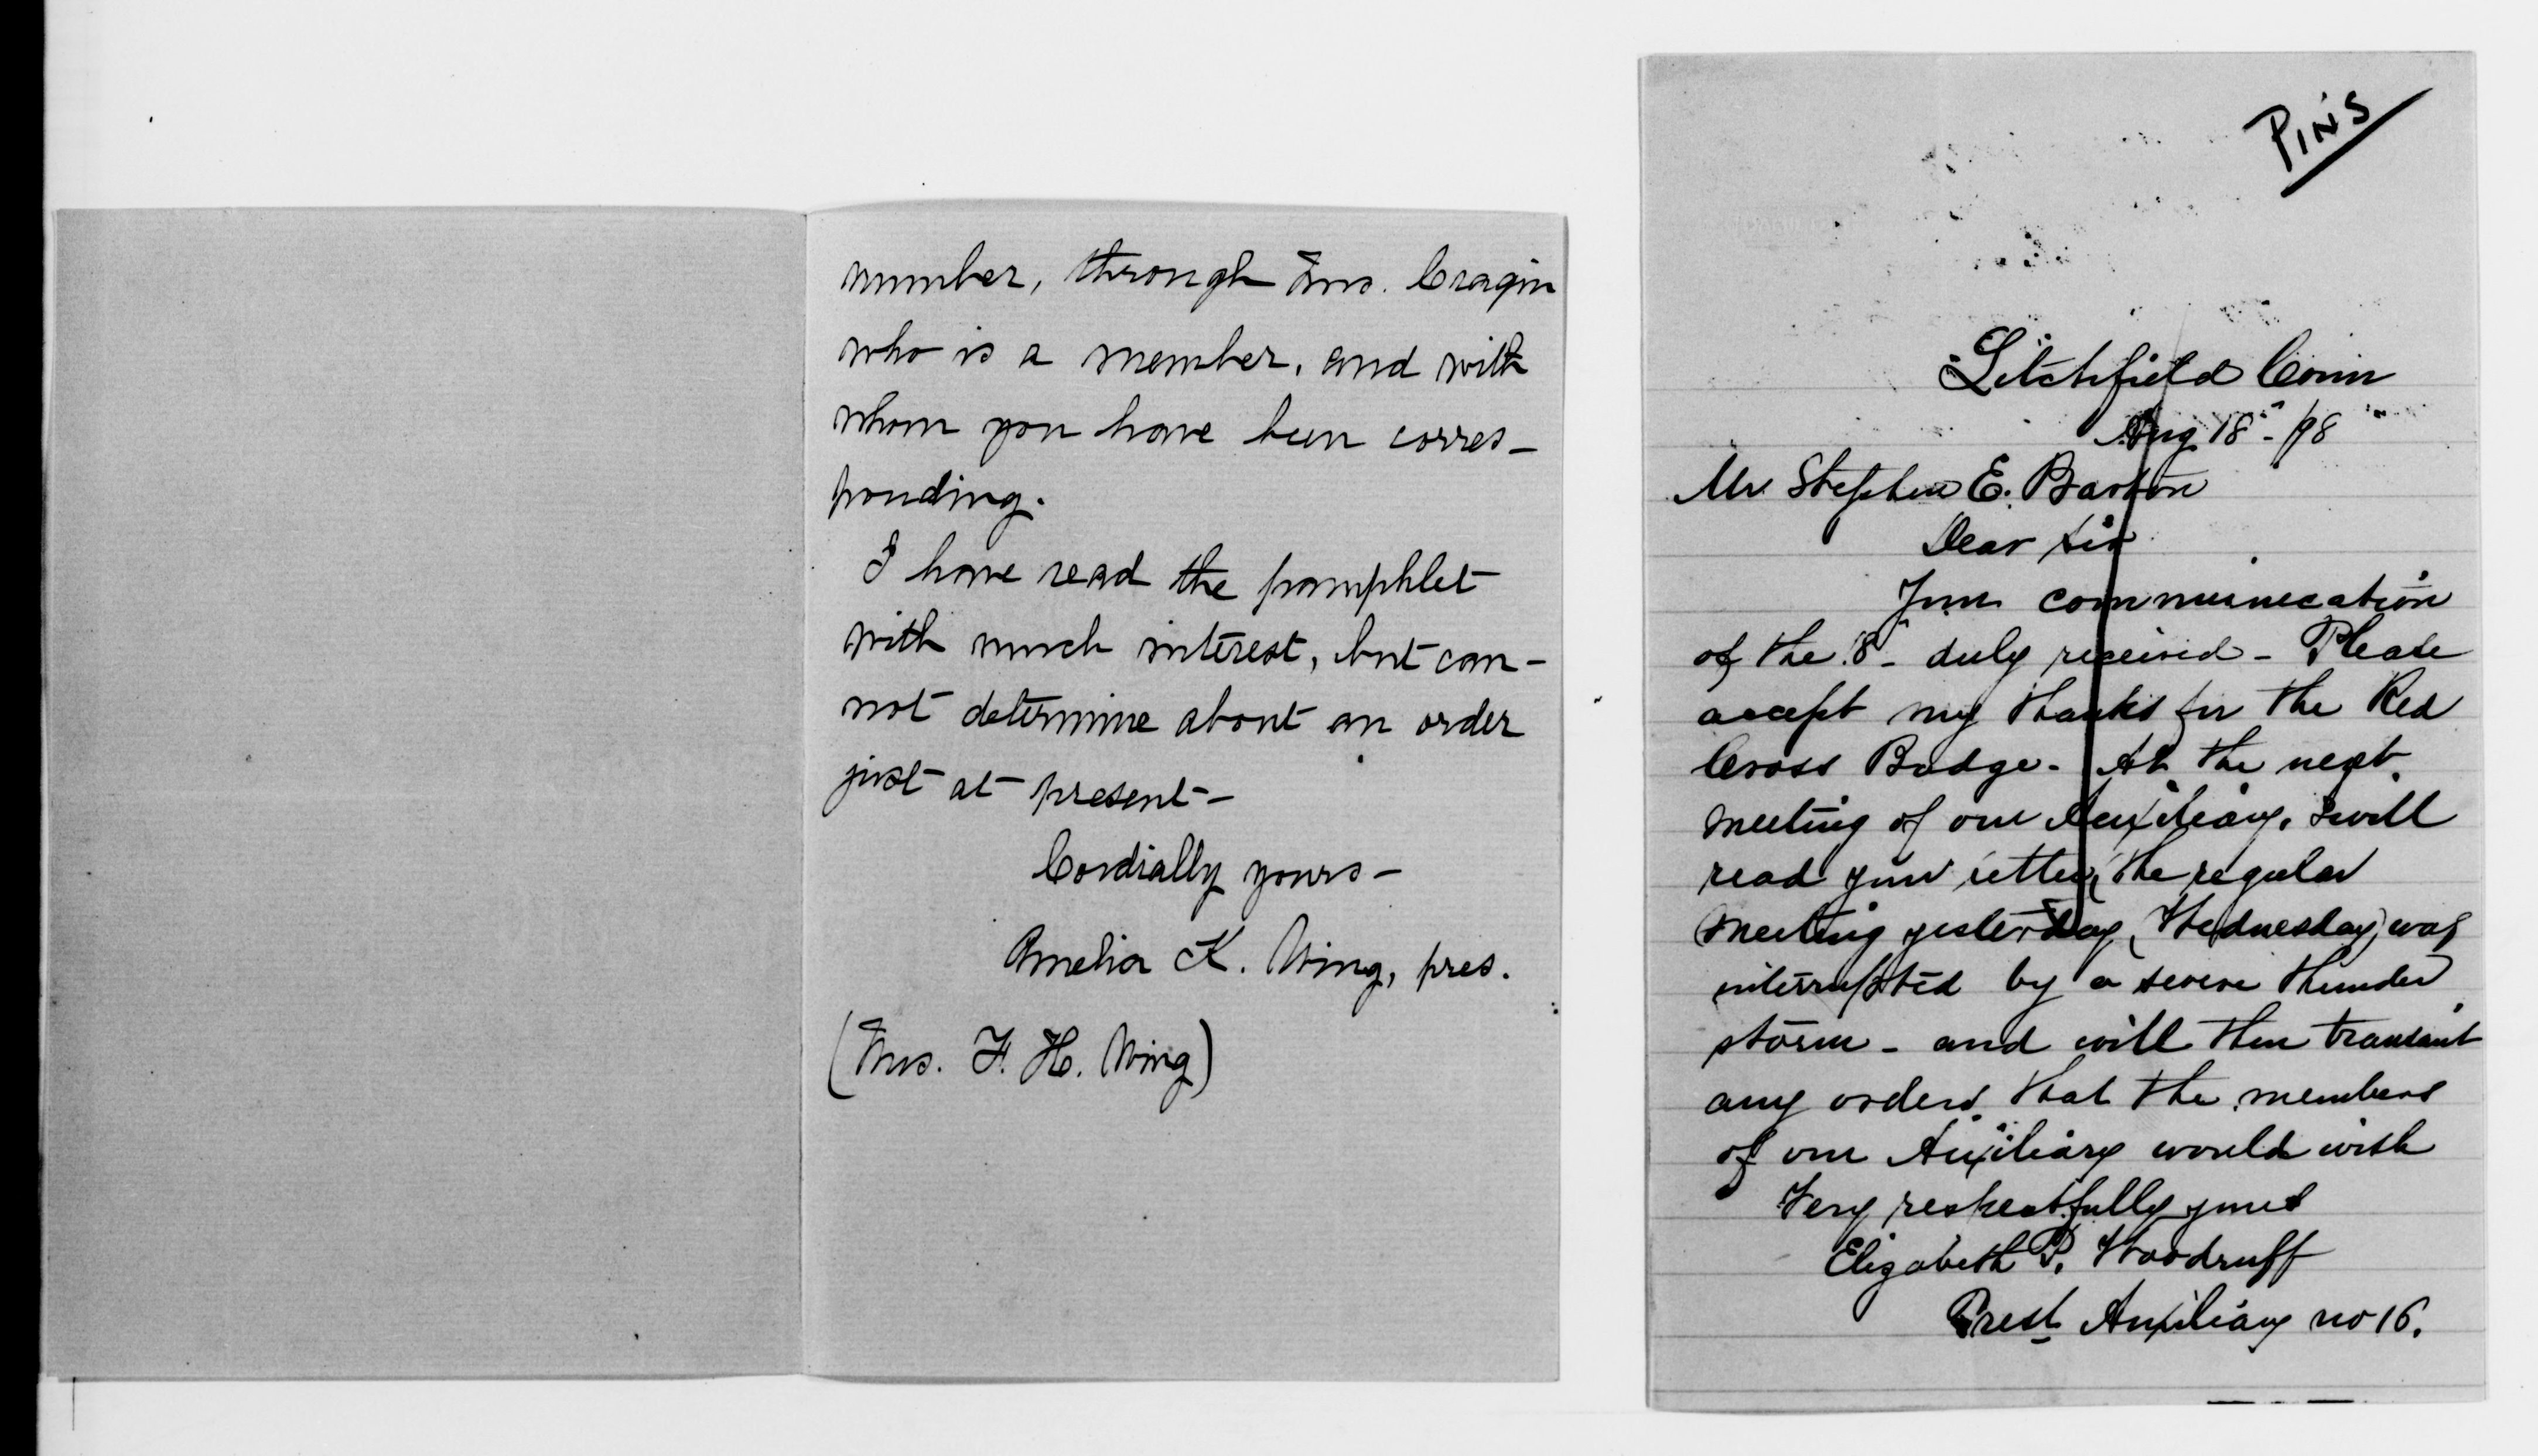 number, through Mrs. Cragin
who is a member, and with
whom you have been corres-
ponding.
I have read the pamphlet
with much interest, but can-
not determine about an order
just at present-
Cordially yours-
Amelia K. Wing, pres.
(Mrs. F. H. Wing)
PINS
Litchfield Conn
Aug 18" - 98
Mr Stephen E. Barton
Dear Sir
Your communication
of the 8" - duly received - Please
accept my thanks for the Red
Cross Badge - At the next
meeting of our Auxiliary, I will
read your letter, (the regular
meeting yesterday, Wednesday, was
interrupted by a severe thunder
storm - and will then transmit
any orders that the members
of our Auxiliary would wish
Very respectfully yours
Elizabeth P. Woodruff
Prest Auxiliary no 16.